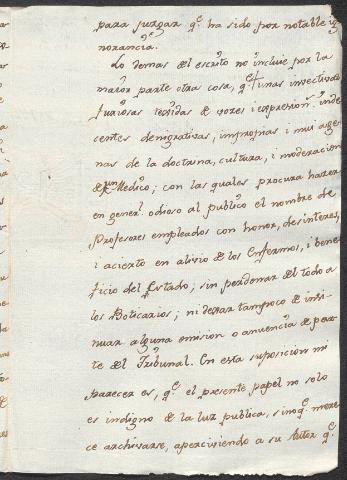 para juzgar q.e ha sido por notable ig
norancia.
Lo demas del escrito no incluie por la
maior parte otra cosa, q.e unas invectivas
furiosas texidas de vozes i expresion.s inde
centes denigrativas, improprias i mui age
nas de la doctrina, cultura, i moderacion
de un Medico; con las quales procura hazer
en gener.l odioso al publico el nombre de
Profesores empleados con honor, desinteres,
i acierto en alivio de los Enfermos, i bene
ficio del Estado; sin perdonar del todo a
los Boticarios; ni dexar tampoco de insi
nuar alguna omision o anuencia de par
te del Tribunal. En esta suposicion mi
parecer es, q.e el presente papel no solo
es indigno de la luz publica, sinoq.e mere
ce archivarse, aperciviendo a su Autor q.e